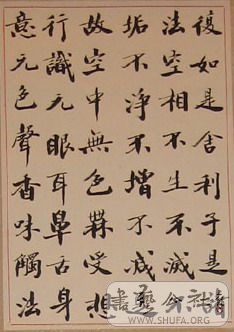 復如是舍利子是諸
法空相不生不滅不
垢不淨不增不減是
故空中無色無受想
行識元眼耳鼻舌身
意元色聲香味觸法
書藝公社
SHUFA.ORG